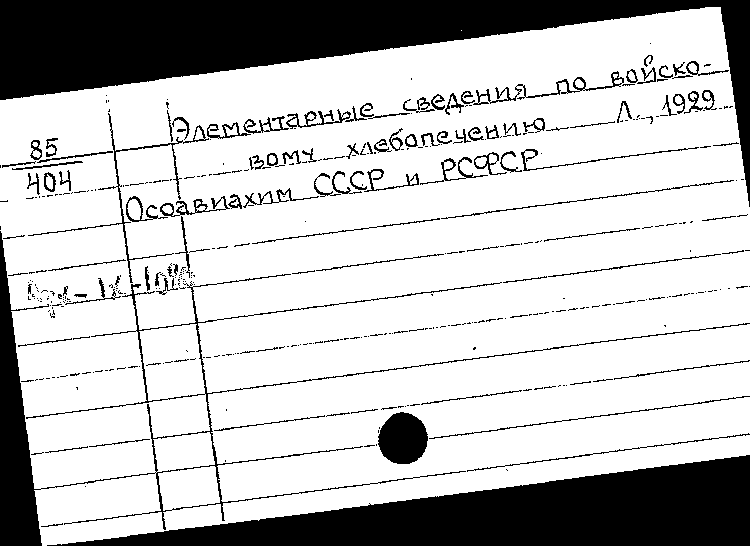 85
404
Элементарные сведения по войско-
вому хлебопечению Л., 1929
Осоавиахим СССР и РСФСР